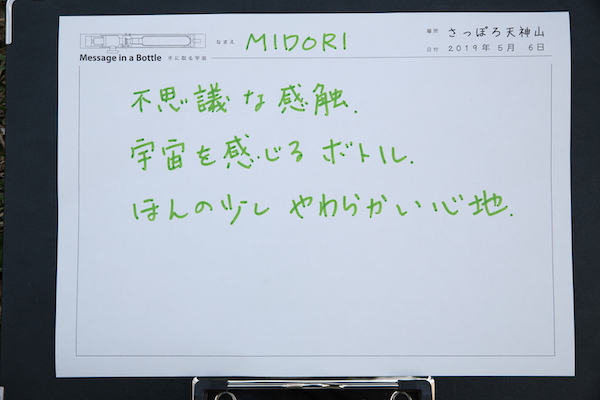 なまえ MIDORI
場所 さっぽろ天神山
日付 2019年5月 6日
Message in a Bottle 手に取る宇宙
不思議な感触.
宇宙を感じるボトル.
ほんの少しやわらかい心地.